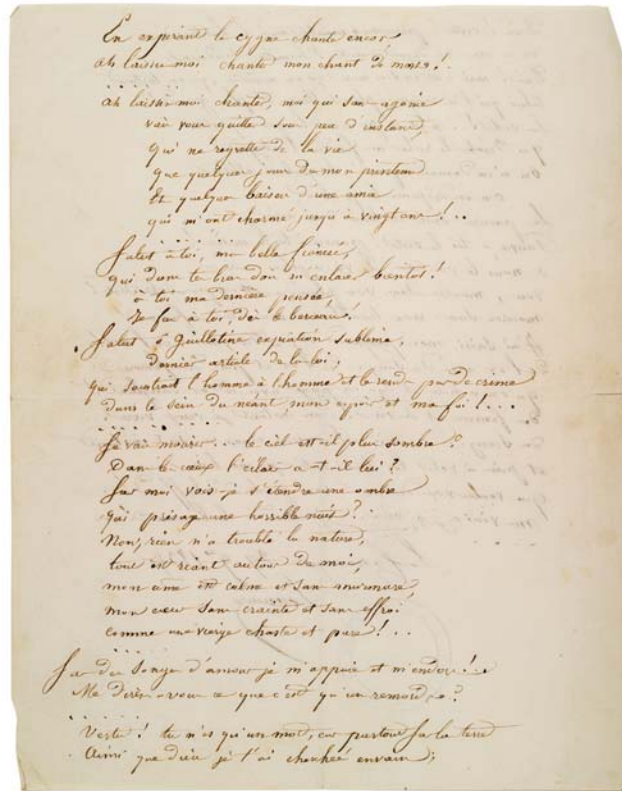 En expirant le cygne chante encor
ah laissez moi chanter mon chant de mort !.
. . . . . .
ah laissez moi chanter, moi qui sans agonie
vais vous quitter dans peu d'instans,
qui ne regrette de la vie
que quelques jours de mon printems
Et quelques baisers d'une amie
qui m'ont charmé jusqu'à vingt ans !..
. . . . . .
Salut à toi, ma belle fiancée,
qui dans tes bras dois m'enlacer bientot !
à toi ma dernière pensée,
Je fus à toi, dès le berceau.
Salut ô Guillotine expiation sublime,
dernier article de la loi,
qui soustrait l'homme à l'homme et le rends pur de crime
dans le sein du néant, mon espoir et ma foi !...
. . . . . .
Je vais mourir... le ciel est-il plus sombre ?
Dans les cieux l'éclair a-t-il lui ?
Sur moi vois-je s'étendre une ombre
Qui présage une horrible nuit ?
Non, rien n'a troublé la nature,
tout est riant autour de moi,
mon ame est calme et sans murmure
mon coeur sans crainte et sans effroi
comme une vierge chaste et pure !..
. . . . .
Sur des songes d'amour je m'appuie et m'endors !..
Me direz-vous ce que c'est qu'un remords ?
. . . . . .
Vertu ! tu n'es qu'un mot, car partout sur la terre
Ainsi que dieu je t'ai cherchée envain ;